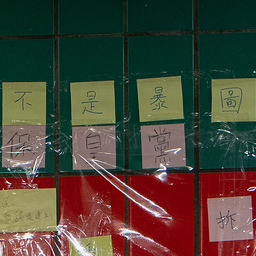 不是暴圖
保皇黨
拆